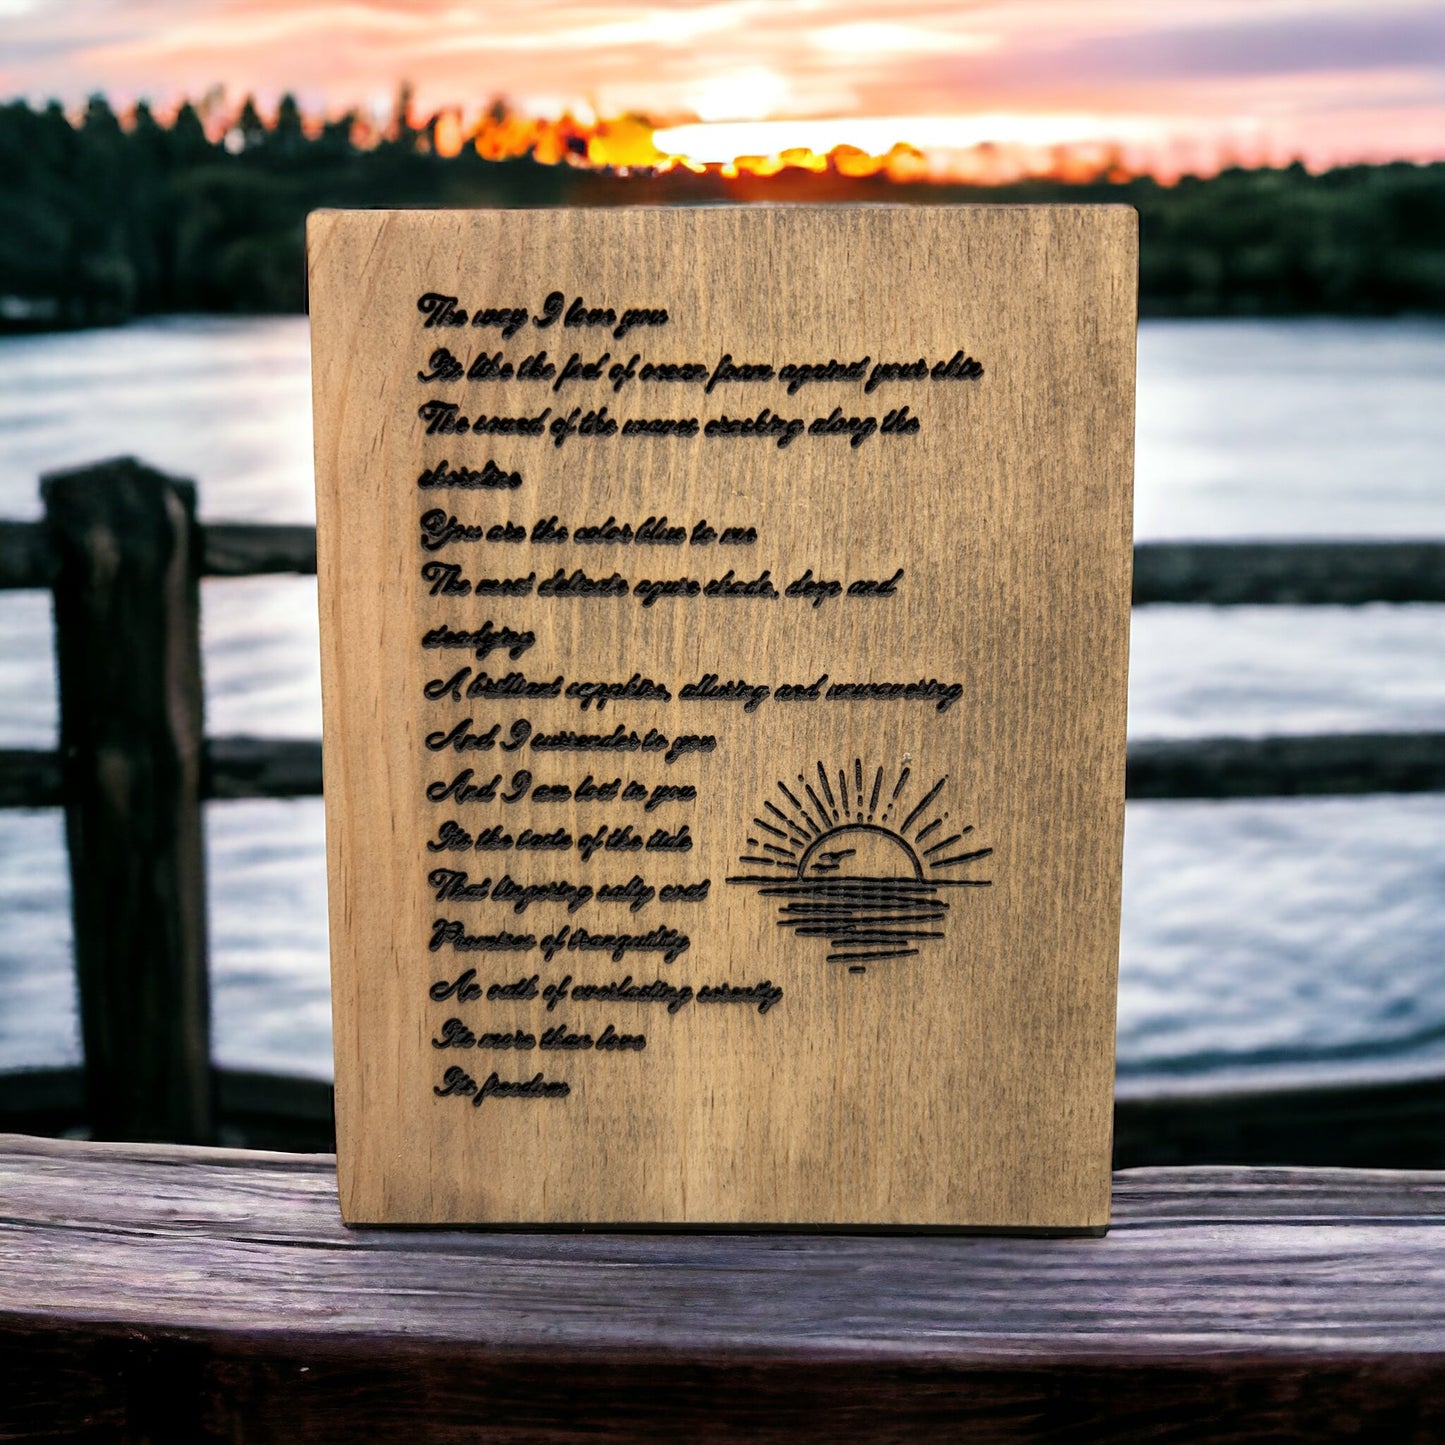 The way I love you
Its like the feel of ocean foam against your skin
The sound of the waves crashing along the
shoreline
You are the color blue to me
The most delicate azure shade, deep and
steadying
A brilliant sapphire, alluring and unwavering
And I surrender to you
And I am lost in you
Its the taste of the tide
That lingering salty coat
Promises of tranquility
An oath of everlasting serenity
Its more than love
Its freedom